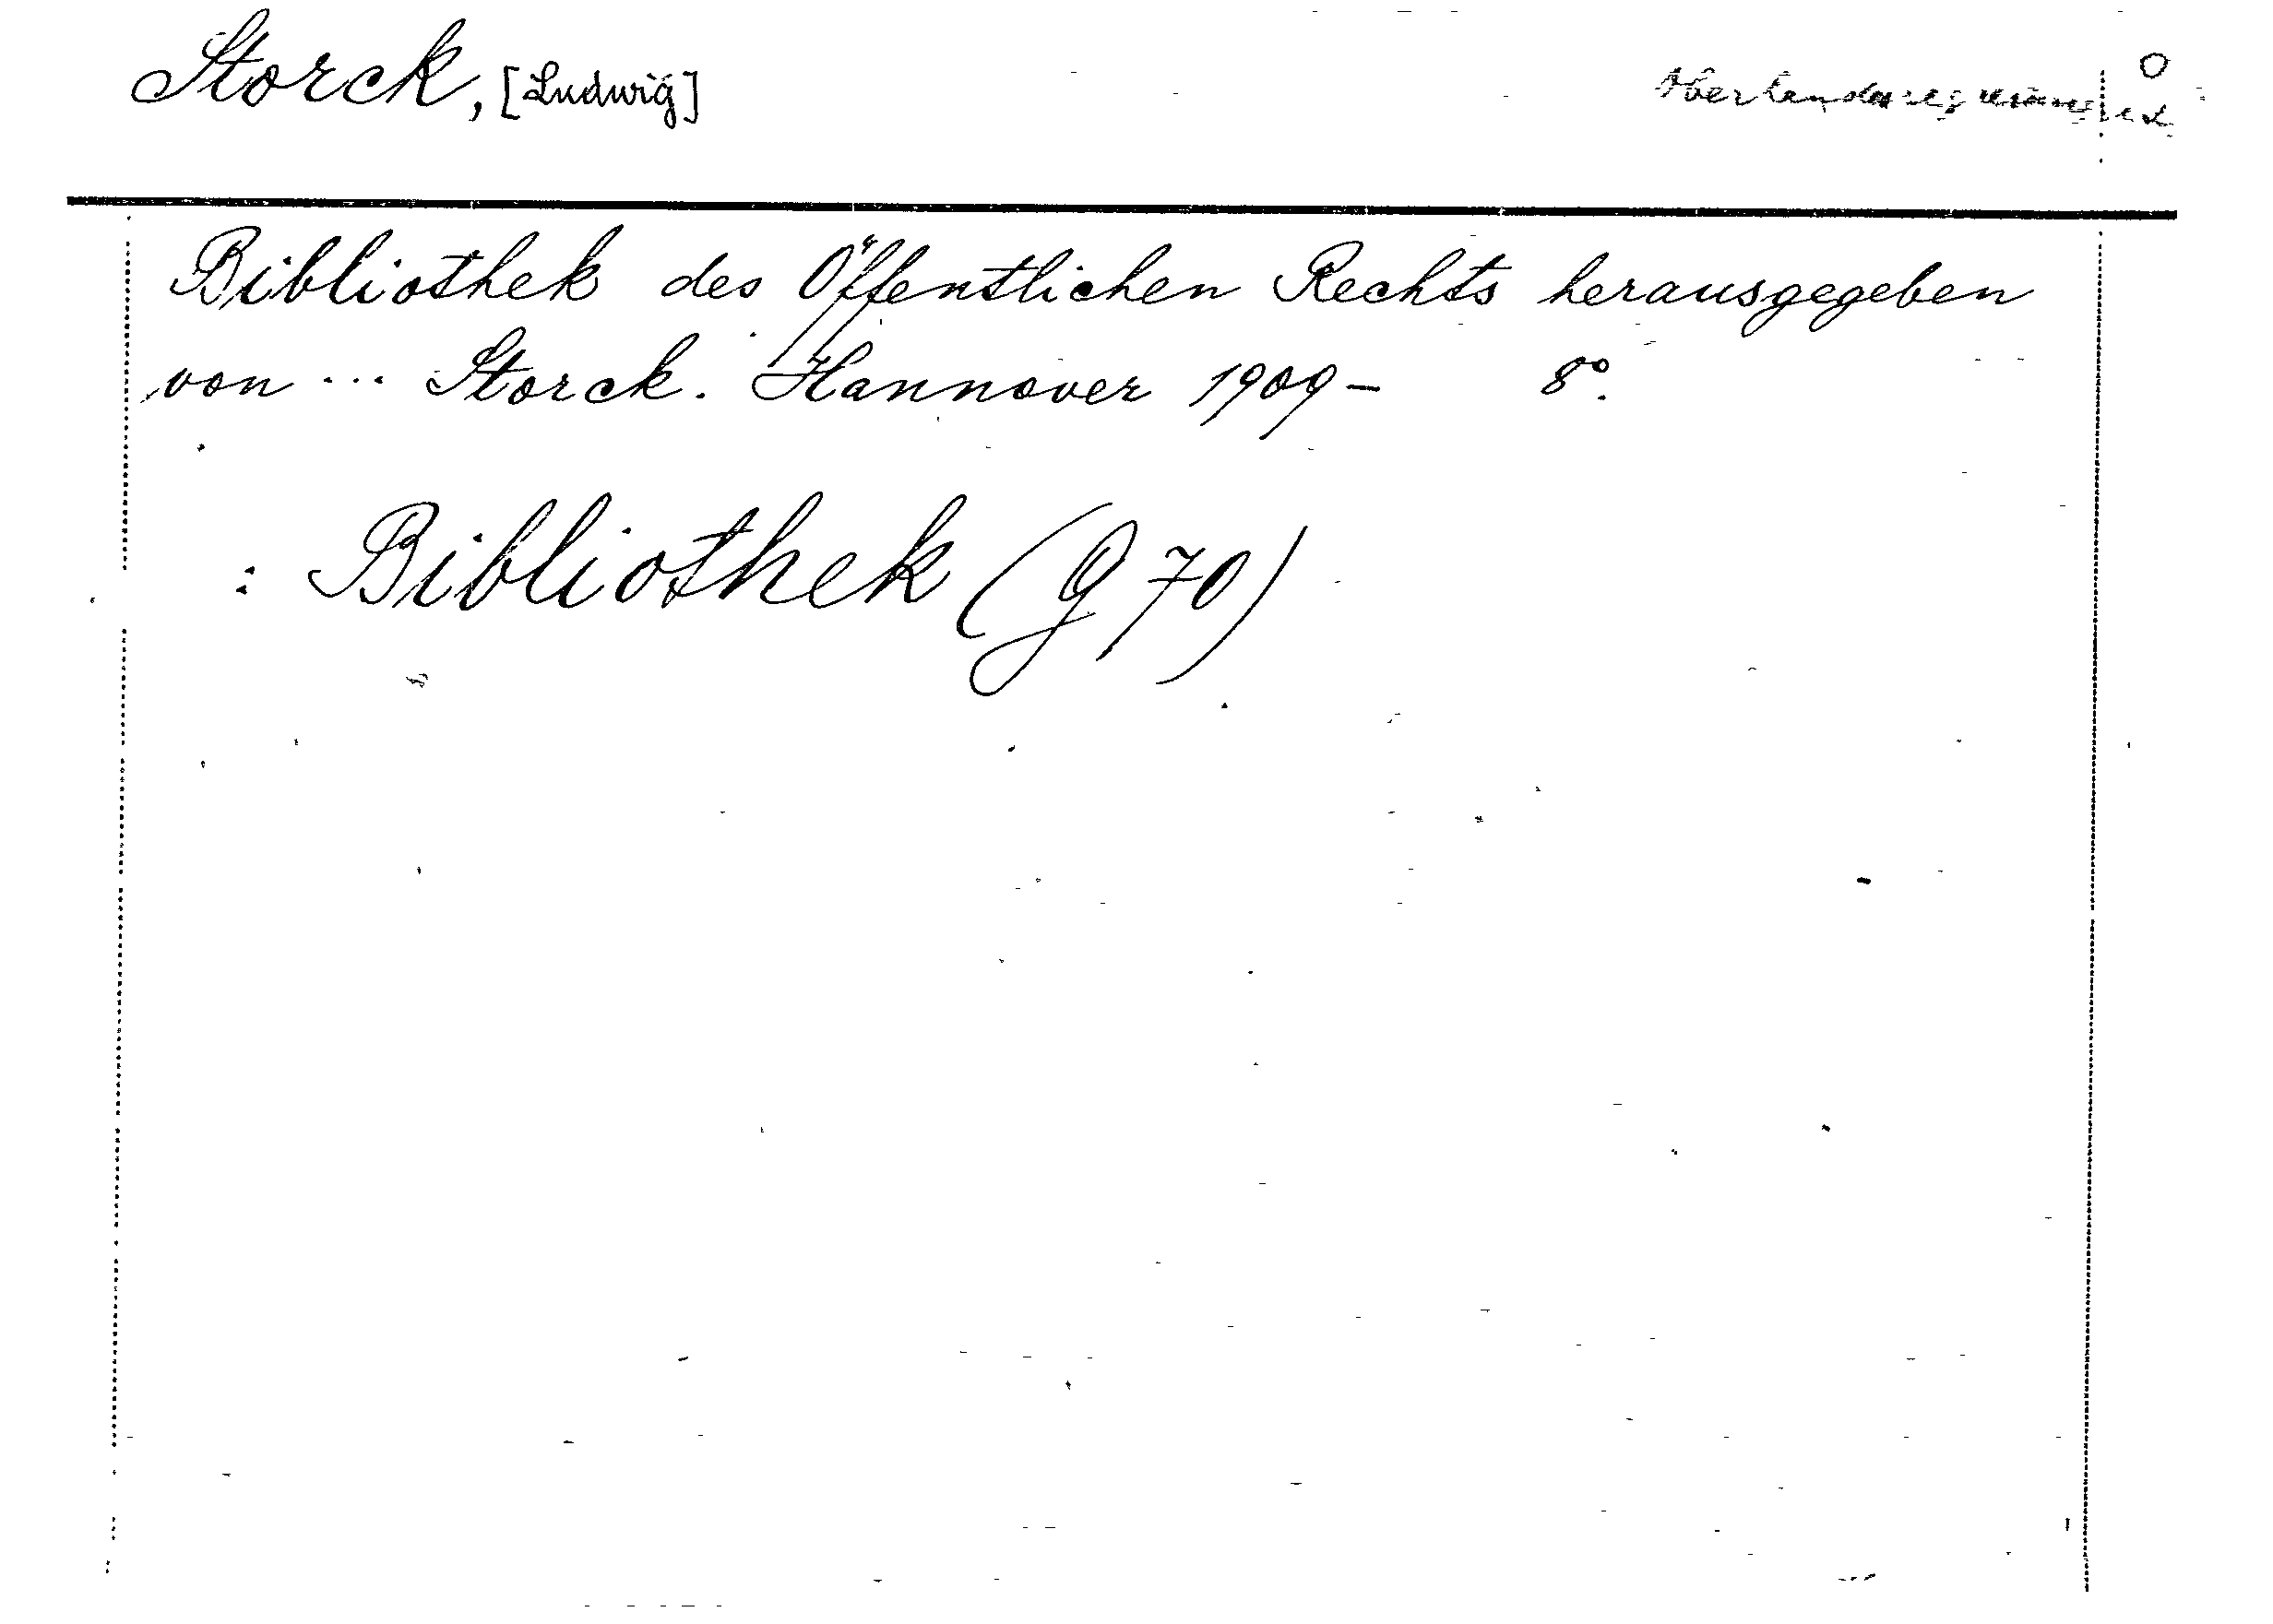 Storck, [Ludwig]
Bibliothek des Öffentlichen Rechts herausgegeben
von ... Storck. Hannover 1909- 8°.
: Bibliothek (G 70)